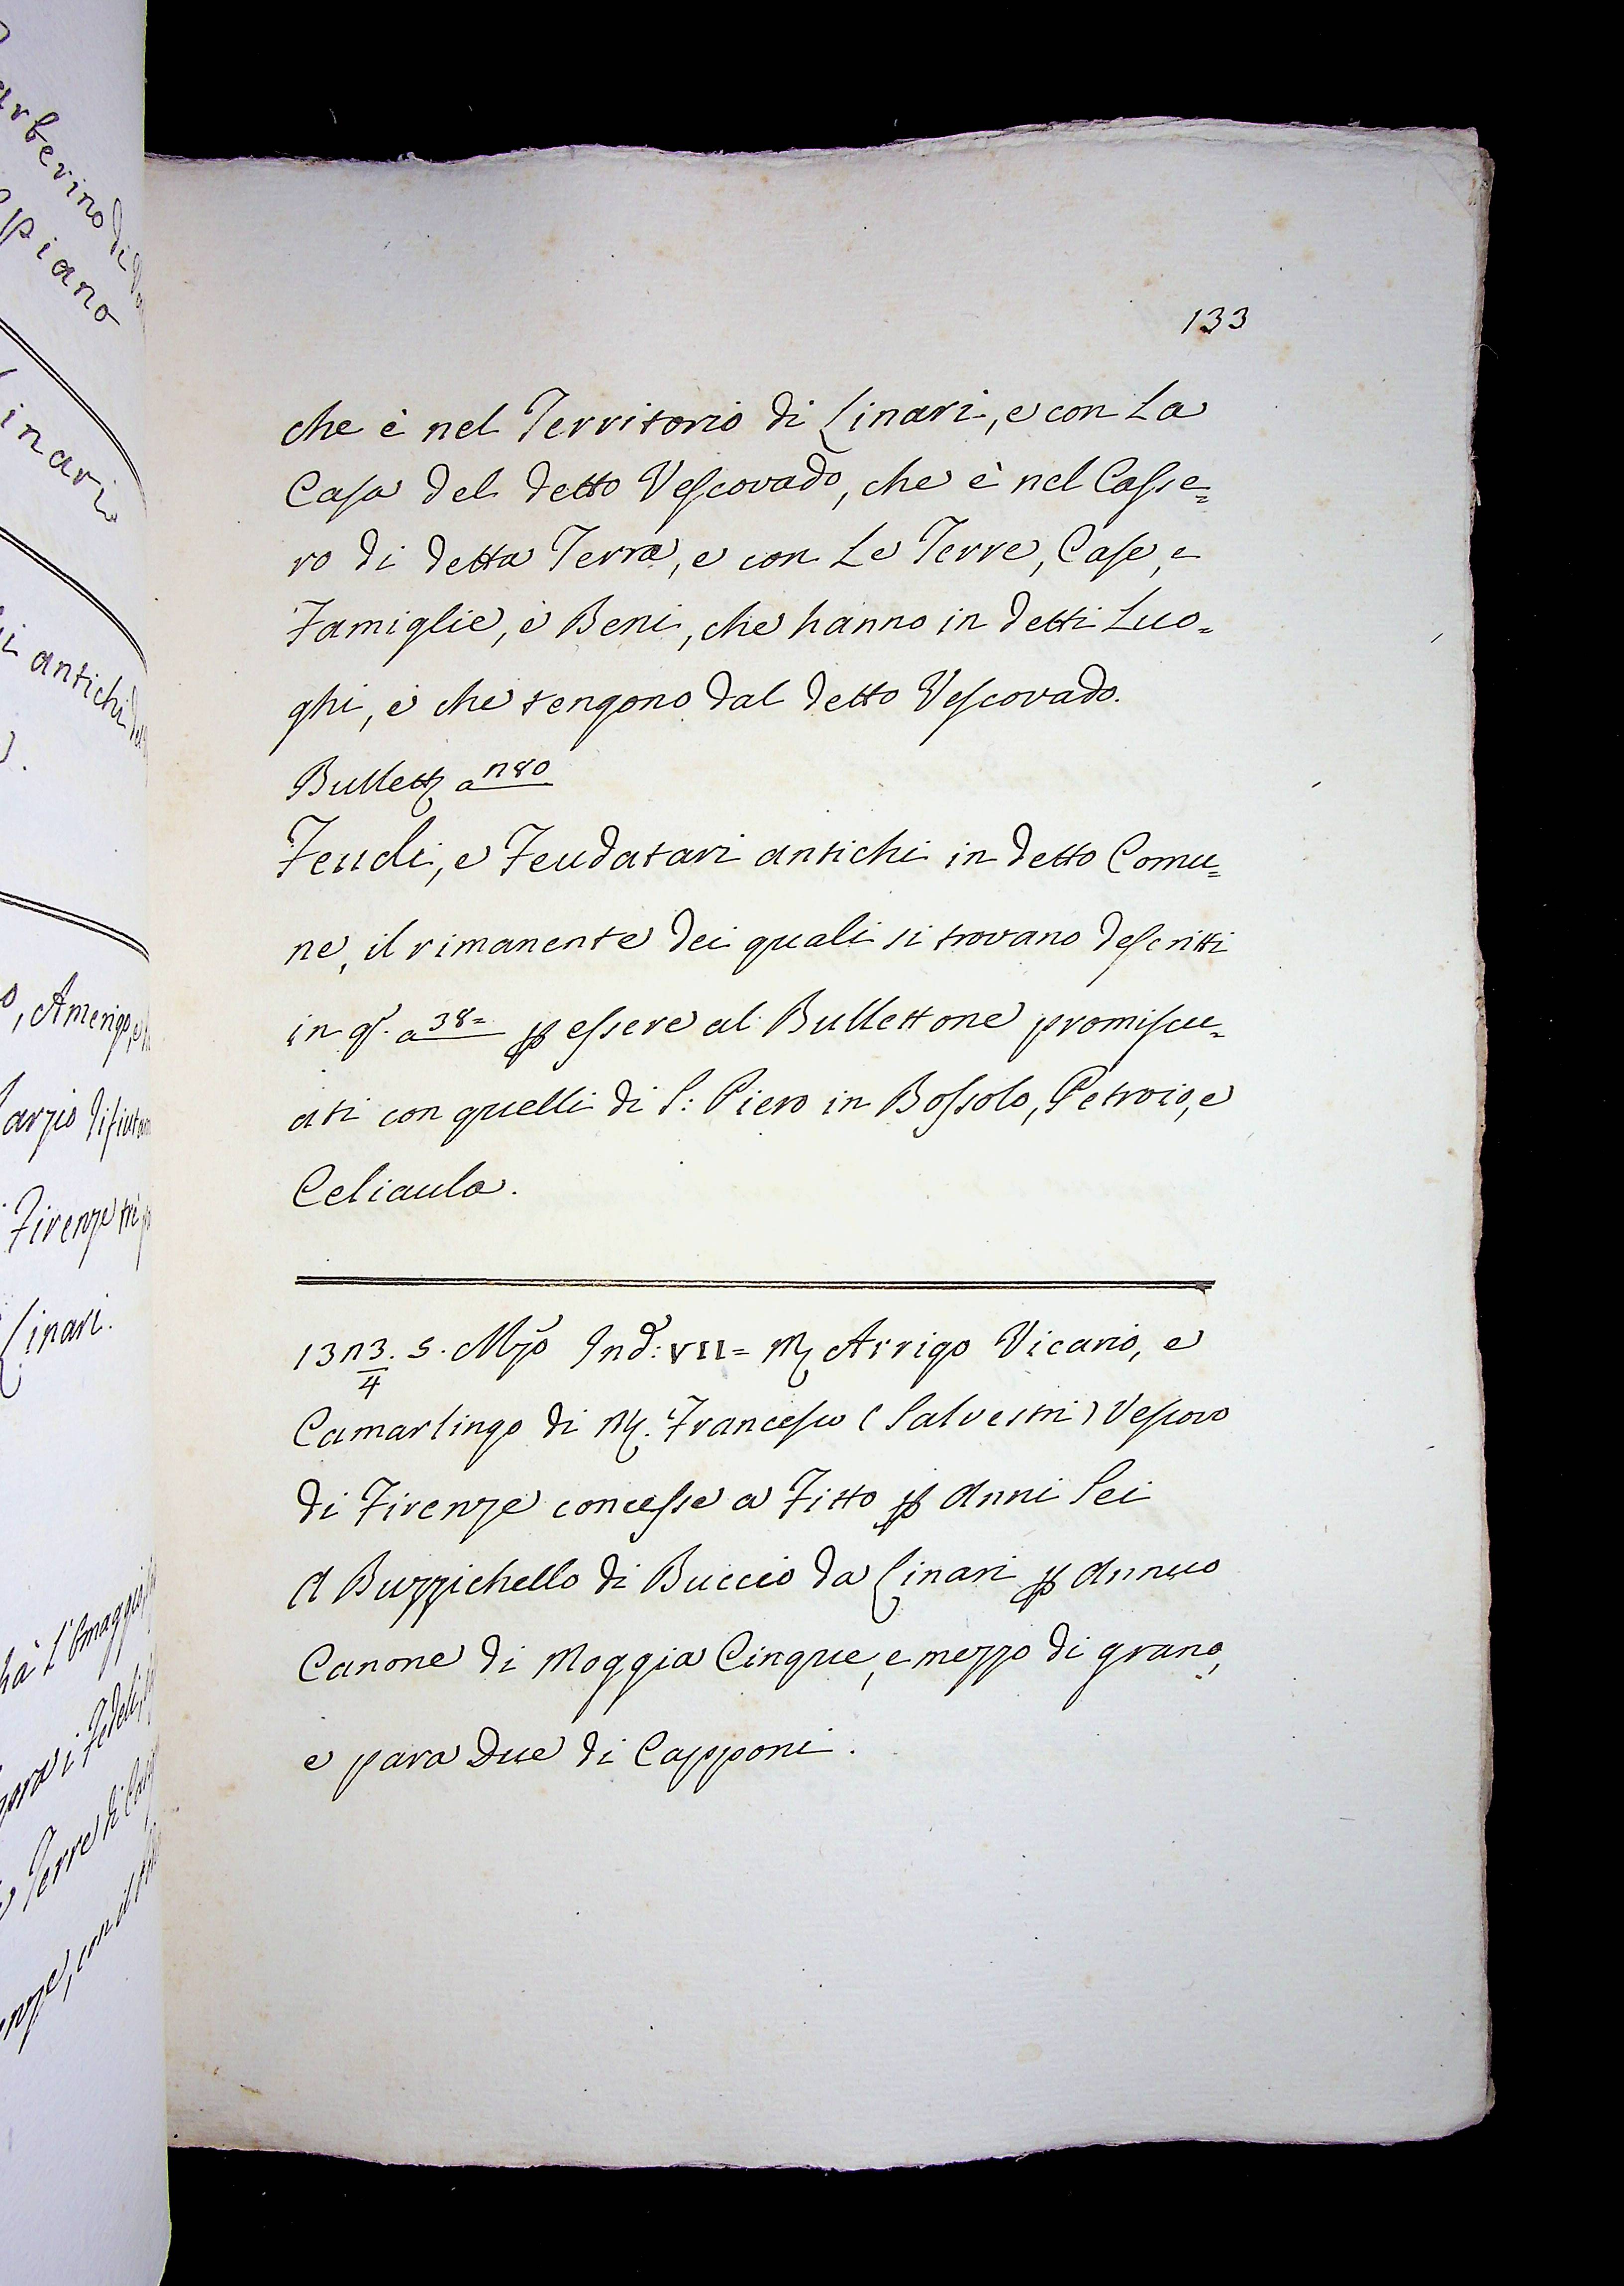 133
che è nel Territorio di Linari, e con La
Casa del detto Vescovado, che è nel Casse=
ro di detta Terra, e con Le Terre, Case, e
Famiglie, e Beni, che hanno in detti Luo=
ghi, e che tengono dal detto Vescovado.
Bullett a 180
Feudi, e Feudatari antichi in detto Comu=
ne, il rimanente dei quali si trovano descritti
in q. a 38= p essere al Bullettone promiscu=
ati con quelli di S: Piero in Bossolo, Petroio, e
Celiaula.
13 3/4. 5. Mzo Ind: VII= M Arrigo Vicario, e
Camarlingo di M. Francesco (Salvestri) Vescovo
di Firenze concesse a Fitto p Anni Sei
A Buzzichello di Buccio da Linari p Annuo
Canone di Moggia Cinque, e mezzo di grano,
e para Due di Capponi.
arberino di
ppiano
inari
i antichi del
, Amerigo, e
Firenze tre
Linari.
hà L'Omaggio
ora i Fedeli
Terre di
con il